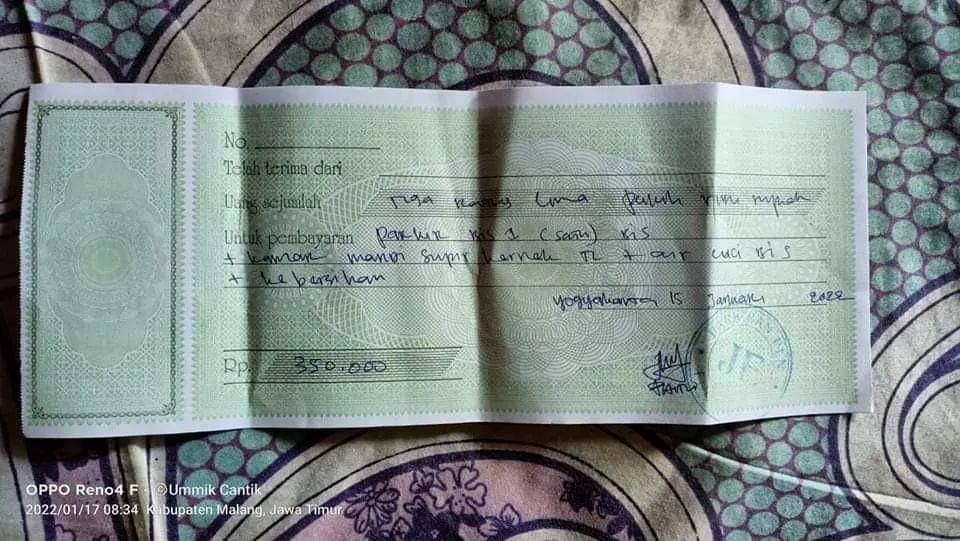 No.
Telah terima dari
Uang sejumlah Tiga ratus lima puluh ribu rupiah
Untuk pembayaran parkir bis 1 (satu) bis
+ kamar mandi supir kernek TL + air cuci bis
+ kebersihan
Yogyakarta 15 Januari 2022
Rp. 350.000
JF
OPPO Reno4 F · ©Ummik Cantik
2022/01/17 08:34 Kabupaten Malang, Jawa Timur